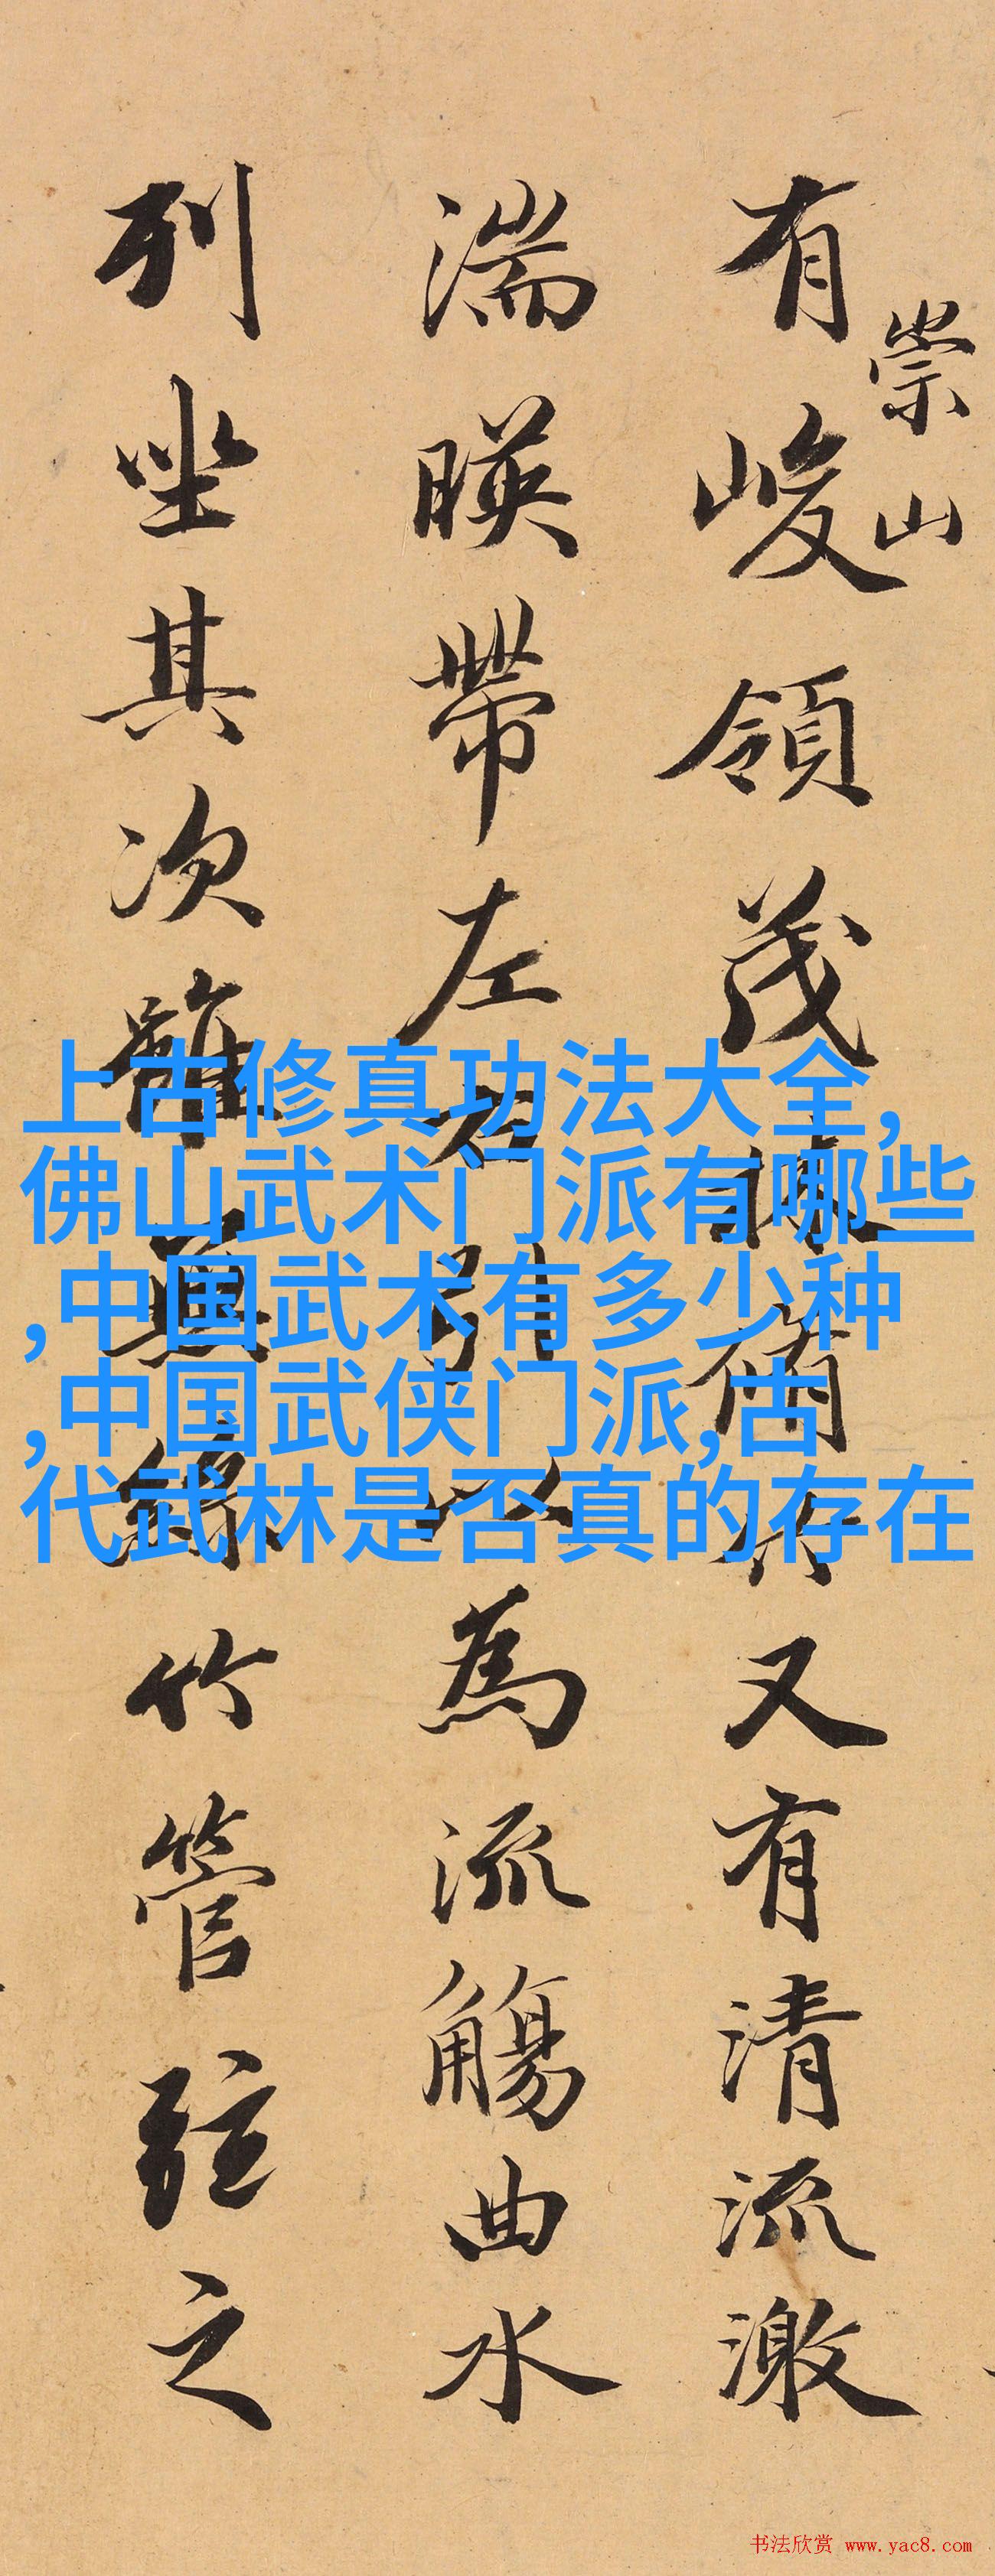 崇山
有峻領茂林脩竹又有清流激
湍暎帶左右引以為流觴曲水
列坐其次雖無絲竹管弦之
上古修真功法大全,
佛山武术门派有哪些
,中国武术有多少种
,中国武侠门派,古
代武林是否真的存在
书法欣赏 www.yac8.com